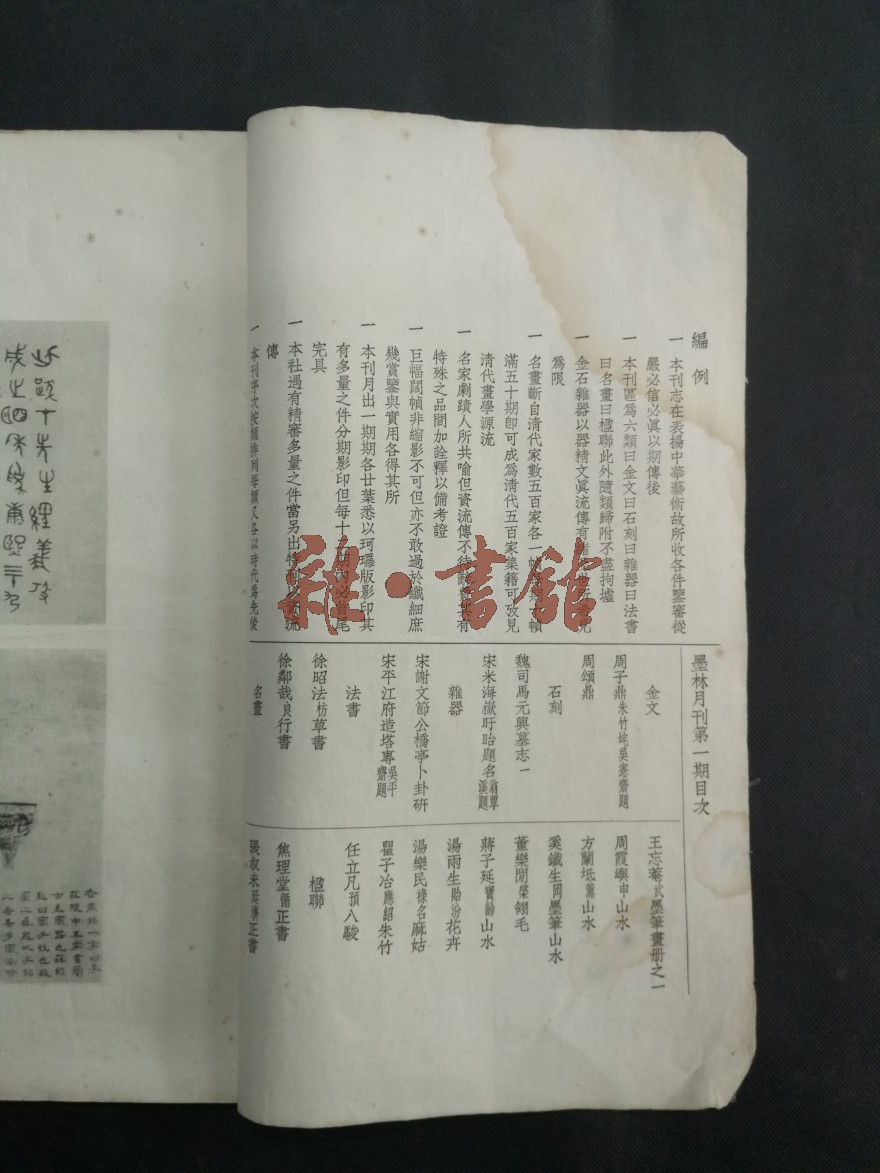 編例
一 本刊志在表揚中華藝術故所收各件鑒審從
嚴必信必眞以期傳後
一 本刊區爲六類曰金文曰石刻曰雜器曰法書
曰名畫曰楹聯此外隨類歸附不盡拘墟
一 金石雜器以器精文眞流傳有
爲限
一 名畫斷自清代家數五百家各一幀
滿五十期卽可成爲清代五百家集籍可攷見
清代畫學源流
一 名家劇蹟人所共喻但資流傳不待
特殊之品間加詮釋以備考證
一 巨幅闊幀非縮影不可但亦不敢過於纖細庶
幾賞鑒與實用各得其所
一 本刊月出一期期各廿葉悉以珂瓈版影印其
有多量之件分期影印但每十 期內必首尾
完具
一 本社遇有精審多量之件當另出特刊以資流
傳
一 本刊序次按類排列每類又各以時代爲先後
墨林月刊第一期目次
金文
周子鼎朱竹垞吳愙齋題
周頌鼎
石刻
魏司馬元興墓志一
宋米海嶽盱眙題名翁覃溪題
雜器
宋謝文節公橋亭卜卦硏
宋平江府造塔專吳平齋題
法書
徐昭法枋草書
徐鄰哉良行書
名畫
王忘菴武墨筆畫册之一
周霞嶼申山水
方蘭坻薰山水
奚鐵生岡墨筆山水
董樂閒棨翎毛
蔣子延寶齡山水
湯雨生貽汾花卉
湯樂民祿名麻姑
瞿子冶應紹朱竹
任立凡預八駿
楹聯
焦理堂循正書
張叔未廷濟正書
雜·書館